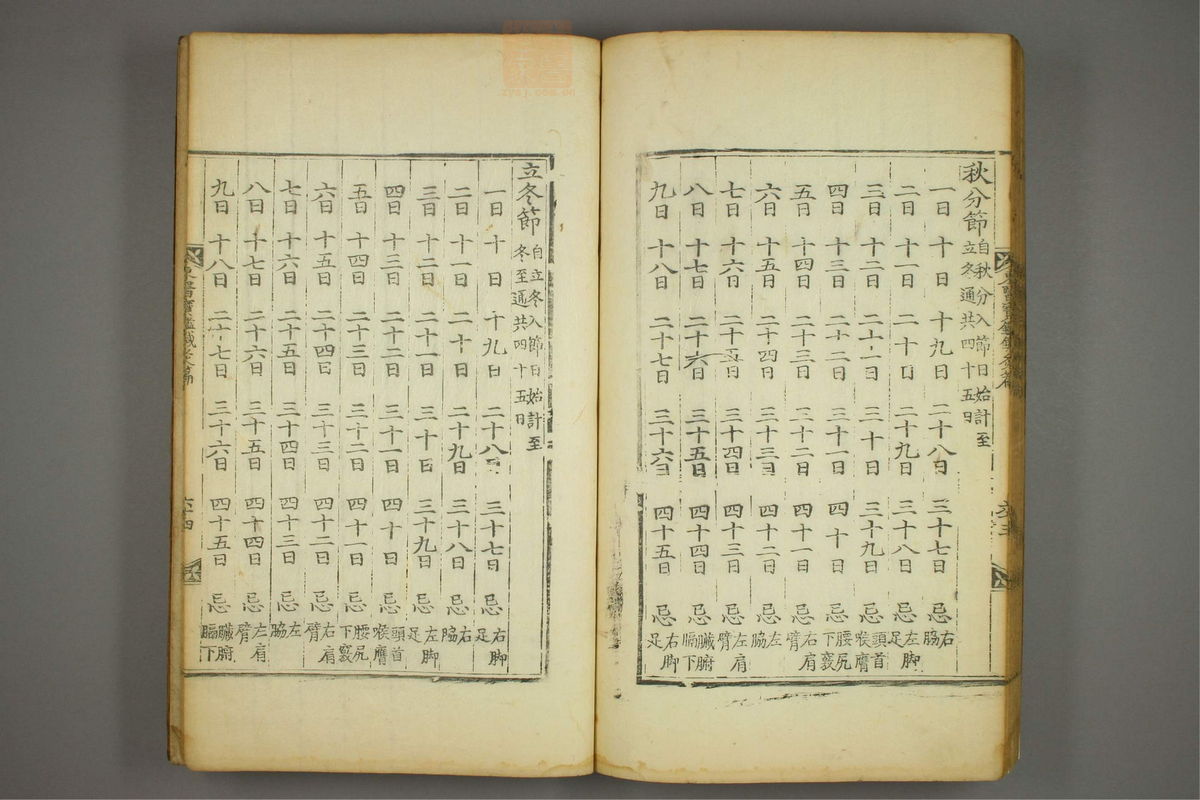 東醫寶鑑鍼灸篇
秋分節 自秋分入節日始計至立冬通共四十五日
一日 十日 十九日 二十八日 三十七日 忌 右脇
二日 十一日 二十日 二十九日 三十八日 忌 左脚足
三日 十二日 二十一日 三十日 三十九日 忌 頭首喉膺
四日 十三日 二十二日 三十一日 四十日 忌 腰尻下竅
五日 十四日 二十三日 三十二日 四十一日 忌 右肩臂
六日 十五日 二十四日 三十三日 四十二日 忌 左脇
七日 十六日 二十五日 三十四日 四十三日 忌 左肩臂
八日 十七日 二十六日 三十五日 四十四日 忌 臟腑膈下
九日 十八日 二十七日 三十六日 四十五日 忌 右脚足
立冬節 自立冬入節日始計至冬至通共四十五日
一日 十日 十九日 二十八日 三十七日 忌 右脚足
二日 十一日 二十日 二十九日 三十八日 忌 右脇
三日 十二日 二十一日 三十日 三十九日 忌 左脚足
四日 十三日 二十二日 三十一日 四十日 忌 頭首喉膺
五日 十四日 二十三日 三十二日 四十一日 忌 腰尻下竅
六日 十五日 二十四日 三十三日 四十二日 忌 右肩臂
七日 十六日 二十五日 三十四日 四十三日 忌 左脇
八日 十七日 二十六日 三十五日 四十四日 忌 左肩臂
九日 十八日 二十七日 三十六日 四十五日 忌 臟腑膈下
東醫寶鑑鍼灸篇 六十四
zysj.com.cn